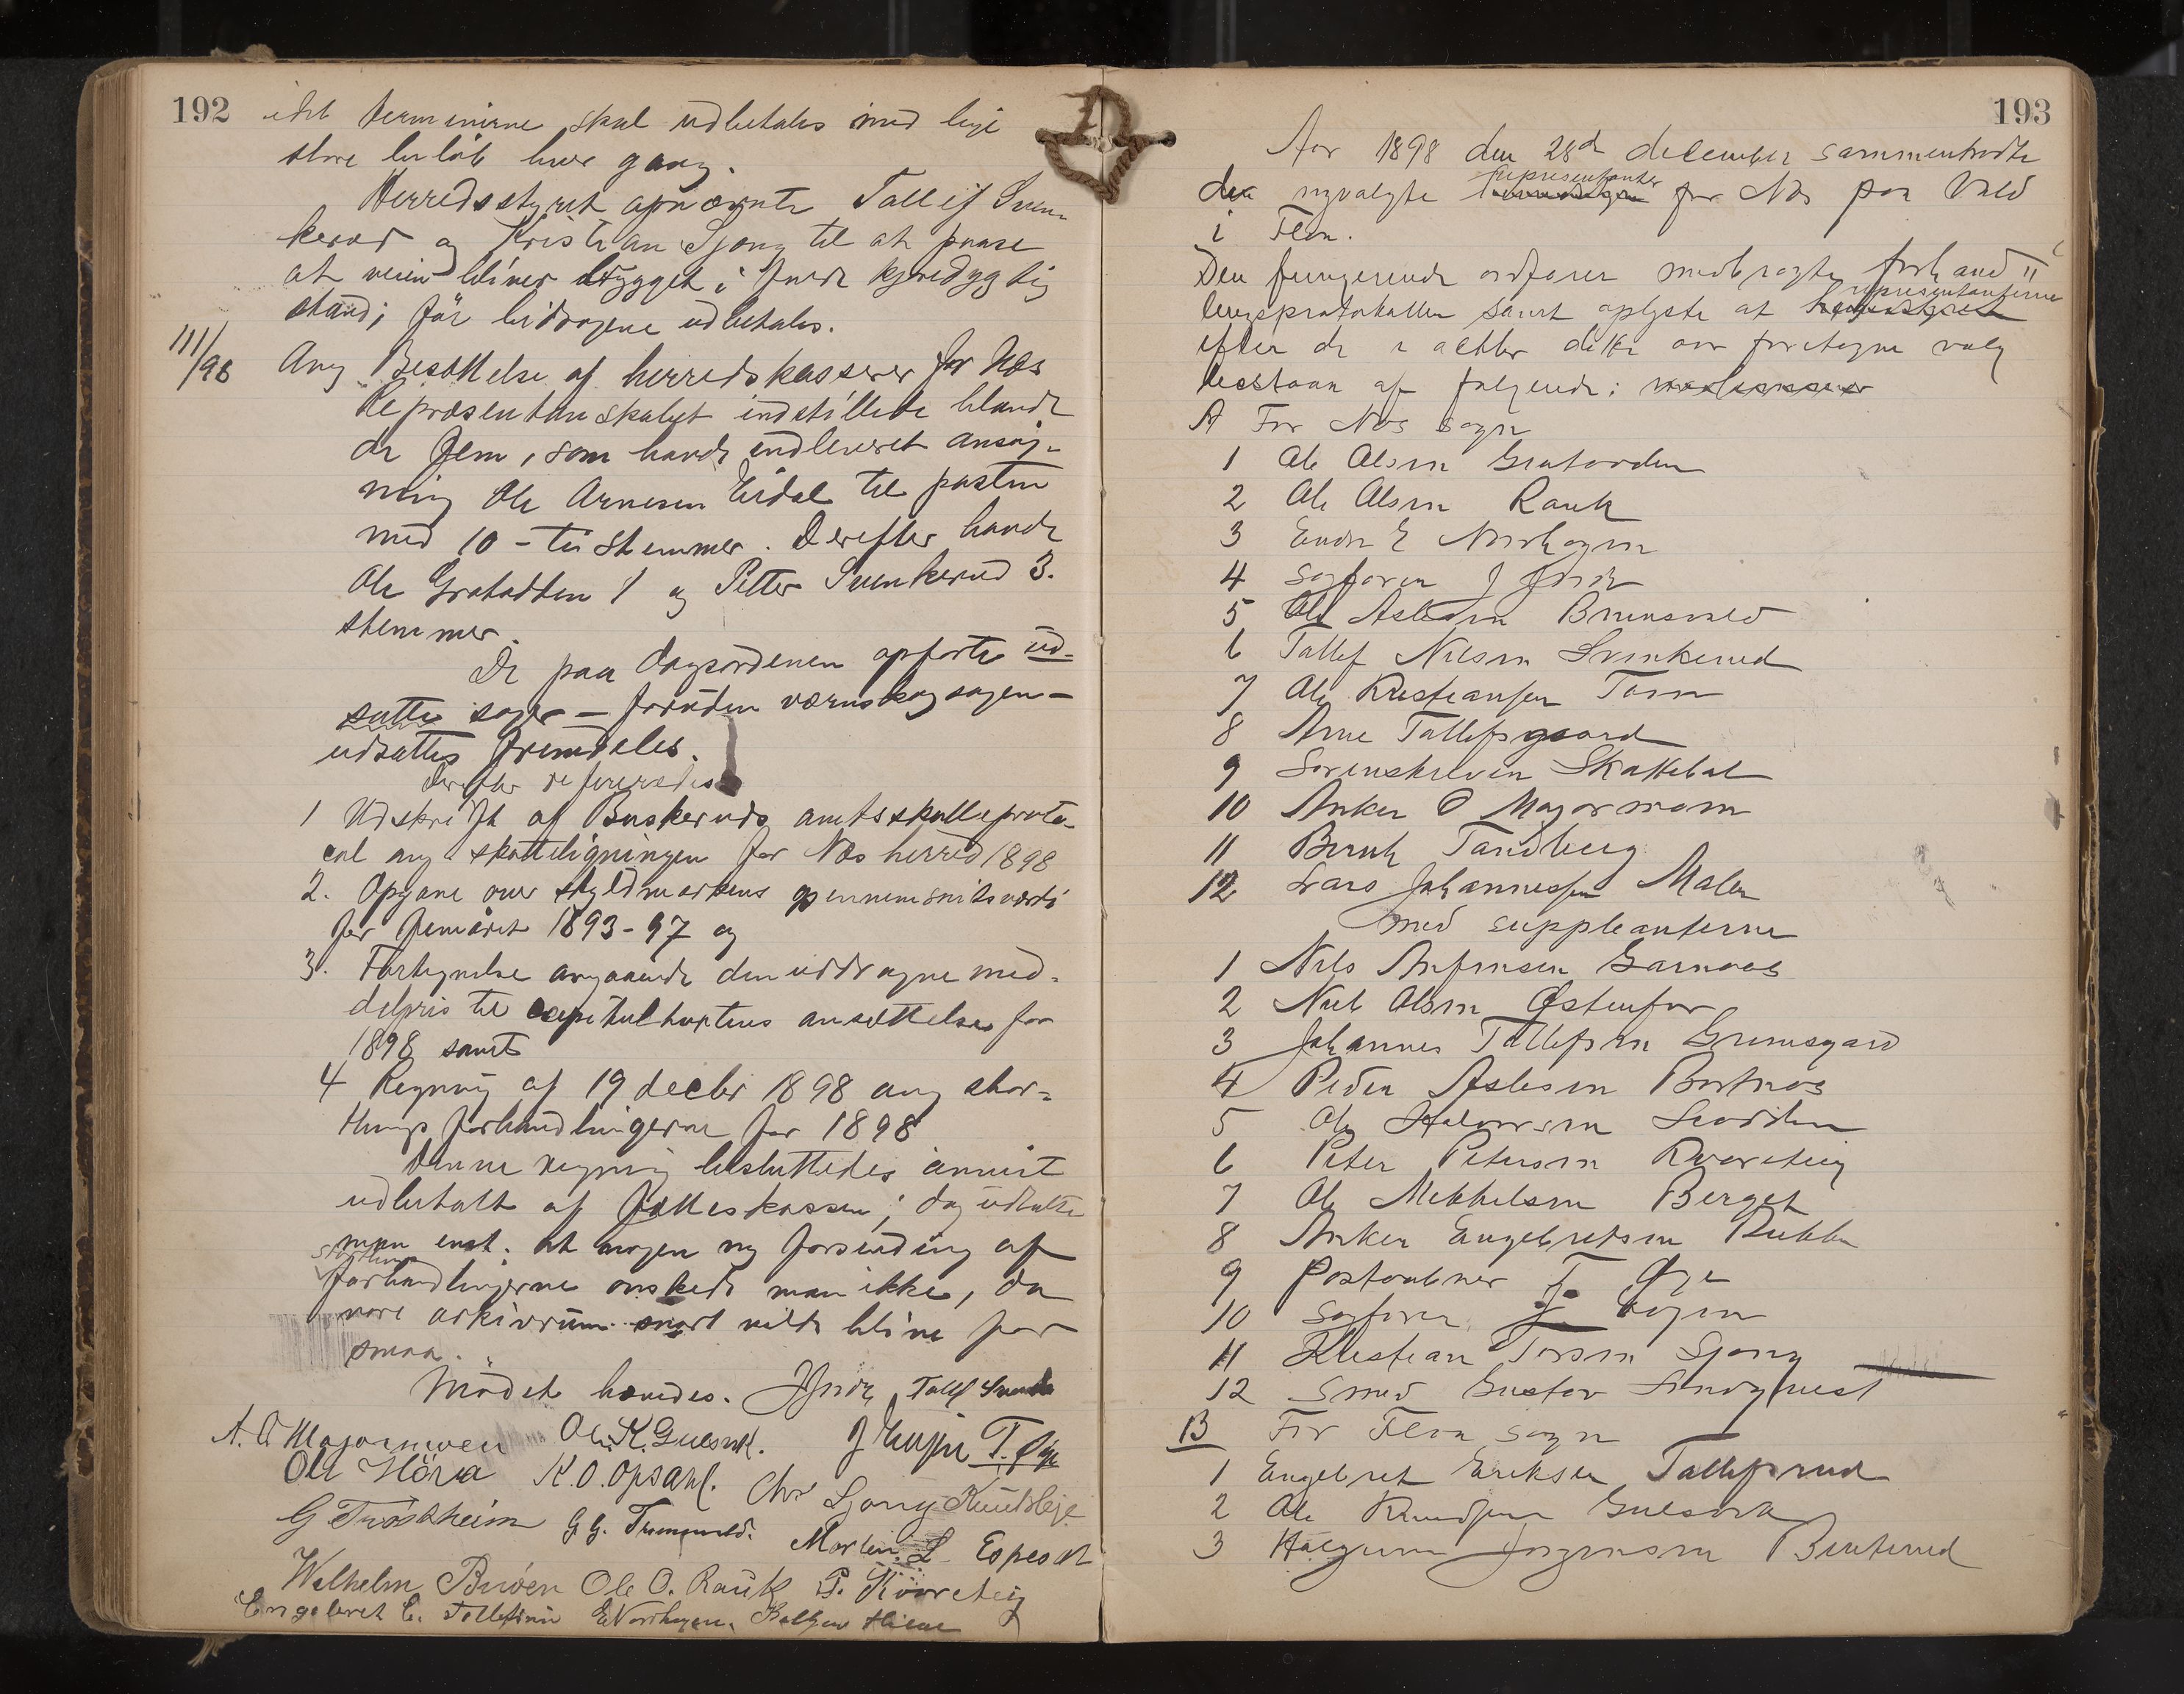 192
idet terminerne skal udbetales med lige
store beløb hver gang.
Herredsstyret opnævnte Tollef Sven-
kerud og Kristian Sjong til at paase
at veien bliver bygget i fuld kjøredygtig
stand, før bidragene udbetales.
111/98 Ang Besættelse af herredskasserer for Næs
Repræsentanskabet indstillede blandt
de fem, som havde indleveret ansøg-
ning Ole Arnesen Eidal til posten
med 10 - ti stemmer. Derefter havde
Ole Grotadden 1 og Petter Svenkerud 3.
stemmer.
De paa dagsordenen opførte ud-
satte sager - foruden vernskogsagen -
udsattes fremdeles.
Derefter refereredes
1 Udskrift af Buskeruds amtsskatteproto-
col ang skatteligningen for Næs herred 1898
2. Opgave over skyldmarkens gjennemsnitsværdi
for femåret 1893-97 og
3. Fortegnelse angaaende den uddragne med-
delpris til capitelstaxtens ansættelse for
1898 samt
4 Regning af 19 decbr 1898 ang stor-
things forhandlingerne for 1898
Denne regning besluttedes anvist
udbetalt af fælleskassen; dog udtalte
man enst. at nogen ny forsending af
storthings
forhandlingerne ønskede man ikke, da
vore arkivrum snart vilde blive for
smaa.
Mødet hævedes. Tollef Svenke
A. O Majormoen Ole K. Gulsvik. T. Øye
Ole Høva K. O. Opsahl. Chr Sjong
G Trøstheim G G. Martin L Espeset
Wilhelm Bueen Ole O. Rauk P. Kvarteig
Engebret E. Tollefsrud E Nordhagen.
193
Aar 1898 den 28de december sammentraadte
representanter
de nyvalgte for Næs paa Vold
i Flaa.
Den fungerende ordfører medbragte forhand-
representanterne
lingsprotokollen samt oplyste at
efter de i aetter dette aar foretagne valg
bestaar af følgende:
A For Næs sogn
1 Ole Olsen Grotadden
2 Ole Olsen Rauk
3 Endre E Nordhagen
4 Sagfører J
5 Ole Aslesen Brunsvold
6 Tollef Nilsen Svenkerud
7 Ole Kristiansen
8 Arne Tollefsgaard
9 Sorenskriver Skattebøl
10 Anker O Majormoen
11 Bernh Tandberg
12 Lars Johannessen Malen
med suppleanterne
1 Nils Anfinsen Garnaas
2 Niels Olsen Østenfor
3 Johannes Tollefsen Grimsgard
4 Peder Aslesen Bortnæs
5 Ole Halvorsen
6 Peter Petersen Kvarteig
7 Ole Mikkelsen Berget
8 Anker Engebretsen
9 Postaabner T. Øye
10 Sagfører
11 Kristian Torsen Sjong
12 Smed Gustav Lindqvist
B For Flaa sogn
1 Engebret Eriksen Tollefsrud
2 Ole Knudsen Gulsvik
3 Halgrim Jørgensen Benterud